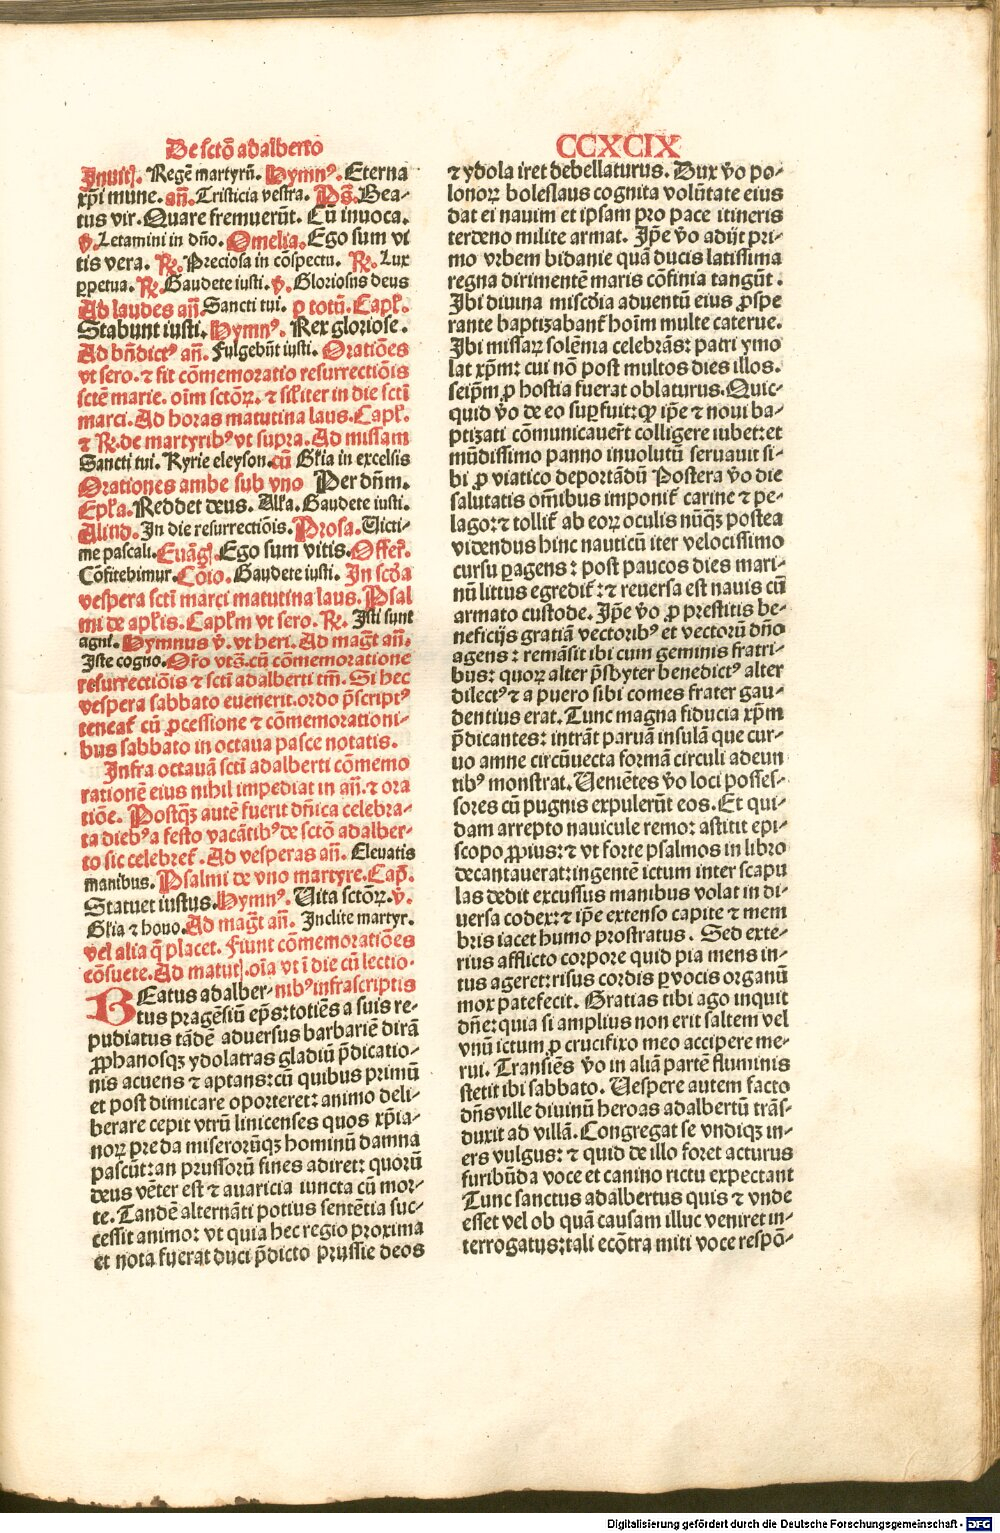 De sctō adalberto
CCXCIX
Inuitꝭ. Regē martyrū. Hymnꝰ. Eterna
xp̄i mune. añ. Tristicia vestra. Pṡ. Bea-
tus vir. Quare fremuerūt. Cū inuoca.
v̄. Letamini in dño. Omelia. Ego sum vi
tis vera. R̃. Preciosa in cōspectu. R̃. Lux
ꝑpetua. R̃. Gaudete iusti. v̄. Gloriosus deus
Ad laudes añ. Sancti tui. ꝑ totū. Capł.
Stabunt iusti. Hymnꝰ. Rex gloriose.
Ad bñdictꝰ añ. Fulgebūt iusti. Oratiōes
vt sero. ⁊ fit cōmemoratio resurrectiōis
sctē marie. oīm sctōꝝ. ⁊ siłiter in die sctī
marci. Ad horas matutina laus. Capł.
⁊ R̃. de martyribꝰ vt supra. Ad missam
Sancti tui. Kyrie eleyson. cū Głia in excelsis
Orationes ambe sub vno Per dñm.
Epła. Reddet deus. Ałła. Gaudete iusti.
Aliud. In die resurrectiōis. Prosa. Victi-
me pascali. Euāgꝭ. Ego sum vitis. Offer̃.
Cōfitebimur. Cōio. Gaudete iusti. In scḋa
vespera sctī marci matutina laus. Psal
mi de apłis. Capłm vt sero. R̃. Isti sunt
agni. Hymnus v̄. vt heri. Ad mag̃t añ.
Iste cogno. Or̃o vts̄. cū cōmemoratione
resurrectiōis ⁊ sctī adalberti tm̄. Si hec
vespera sabbato euenerit. ordo p̄scriptꝰ
teneat̃ cū ꝓcessione ⁊ cōmemorationi-
bus sabbato in octaua pasce notatis.
Infra octauā sctī adalberti cōmemo
rationē eius nihil impediat in añ. ⁊ ora
tiōe. Postqꝫ autē fuerit dñica celebra-
ta diebꝰ a festo vacātibꝰ de sctō adalber-
to sic celebret̃. Ad vesperas añ. Eleuatis
manibus. Psalmi de vno martyre. Cap̄.
Statuet iustus. Hymnꝰ. Vita sctōꝝ. v̄.
Głia ⁊ hono. Ad mag̃t añ. Inclite martyr.
vel alia q̄ placet. Fiunt cōmemoratiōes
cōsuete. Ad matutꝭ. oīa vt ī die cū lectio-
BEatus adalber- nibꝰ infrascriptis
tus pragēsiū ep̄s: totiēs a suis re-
pudiatus tādē aduersus barbariē dirā
ꝓphanosqꝫ ydolatras gladiū p̄dicatio-
nis acuens ⁊ aptans: cū quibus primū
et post dimicare oporteret: animo deli-
berare cepit vtrū linicenses quos xp̄ia-
noꝝ preda miserorūqꝫ hominū damna
pascūt: an prussorū fines adiret: quorū
deus vēter est ⁊ auaricia iuncta cū mor-
te. Tandē alternāti potius sentētia suc-
cessit animo: vt quia hec regio proxima
et nota fuerat duci p̄dicto prussie deos
⁊ ydola iret debellaturus. Dux v̄o po-
lonoꝝ boleslaus cognita volūtate eius
dat ei nauim et ipsam pro pace itineris
terdeno milite armat. Ip̄e v̄o adijt pri-
mo vrbem bidanie quā ducis latissima
regna dirimentē maris cōfinia tangūt.
Ibi diuina mis̄cḋia aduentū eius ꝓspe
rante baptizabant̃ hoīm multe caterue.
Ibi missaꝝ solēnia celebrās: patri ymo
lat xp̄m: cui nō post multos dies illos.
seip̄m ꝓ hostia fuerat oblaturus. Quic-
quid v̄o de eo suꝑfuit: qꝫ ip̄e ⁊ noui ba-
ptizati cōmunicauer̃t colligere iubet: et
mūdissimo panno inuolutū seruauit si-
bi ꝓ viatico deportādū Postera v̄o die
salutatis om̄ibus imponit̃ carine ⁊ pe-
lago: ⁊ tollit̃ ab eoꝝ oculis nūqꝫ postea
videndus hinc nauticū iter velocissimo
cursu ꝑagens: ⁊ post paucos dies mari-
nū littus egredit̃: ⁊ reuersa est nauis cū
armato custode. Ip̄e v̄o ꝓ prestitis be-
neficijs gratiā vectoribꝰ et vectorū dño
agens: remāsit ibi cum geminis fratri-
bus: quoꝝ alter p̄sbyter benedictꝰ alter
dilectꝰ ⁊ a puero sibi comes frater gau-
dentius erat. Tunc magna fiducia xp̄m
p̄dicantes: intrāt paruā insulā que cur-
uo amne circūuecta formā circuli adeun
tibꝰ monstrat. Ueniētes v̄o loci posses-
sores cū pugnis expulerūt eos. Et qui-
dam arrepto nauicule remo: astitit epi-
scopo ꝓpius: ⁊ vt forte psalmos in libro
decantauerat: ingentē ictum inter scapu
las dedit excussus manibus volat in di-
uersa codex: ⁊ ip̄e extenso capite ⁊ mem
bris iacet humo prostratus. Sed exte-
rius afflicto corpore quid pia mens in-
tus ageret: risus cordis ꝑ vocis organū
mox patefecit. Gratias tibi ago inquit
dñe: quia si amplius non erit saltem vel
vnū ictum ꝓ crucifixo meo accipere me-
rui. Transiēs v̄o in aliā partē fluminis
stetit ibi sabbato. Uespere autem facto
dñs ville diuinū heroas adalbertū trās-
duxit ad villā. Congregat se vndiqꝫ in-
ers vulgus: ⁊ quid de illo foret acturus
furibūda voce et canino rictu expectant
Tunc sanctus adalbertus quis ⁊ vnde
esset vel ob quā causam illuc veniret in-
terrogatus: tali ecōtra miti voce respō-
Digitalisierung gefördert durch die Deutsche Forschungsgemeinschaft - DFG